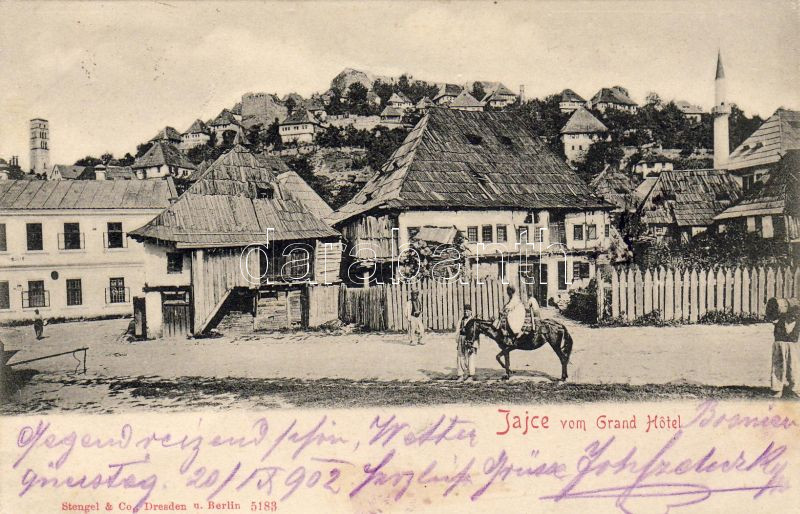 darabanth
Jajce vom Grand Hôtel Bosnien
Gegend reizend schön, Wetter
günstig. 20/IX 902 Herzliche Grüsse
Stengel & Co., Dresden u. Berlin 5183